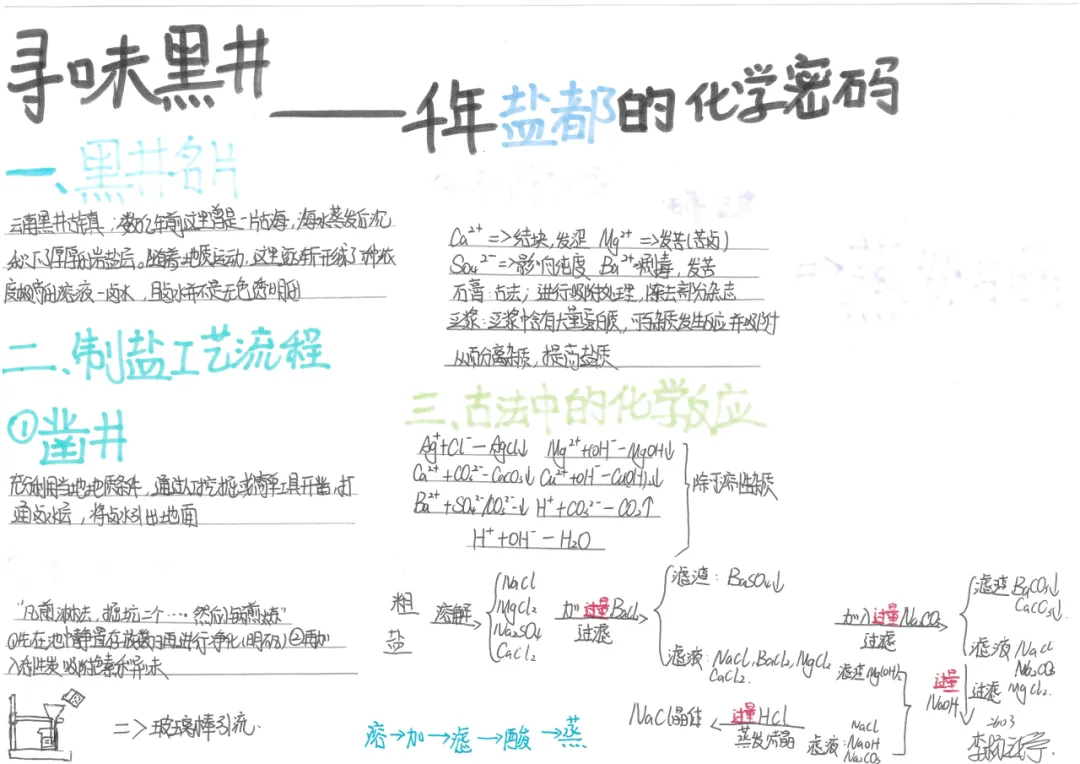 寻味黑井
——千年盐都的化学密码
一、黑井名片
云南黑井古镇；数亿年前这里曾是一片古海，海水蒸发后沉
积下了厚厚的岩盐层。随着地质运动，这里逐渐形成了一种浓
度极高的溶液—卤水，且卤水并不是无色透明的
二、制盐工艺流程
①凿井
充分利用当地地质条件，通过人工挖掘或简单工具开凿，打
通卤水层，将卤水引出地面
"凡煎淋法，掘坑二个……然后入锅煎炼"
①先在池中静置存放数日再进行净化(明矾)②再加
入活性炭吸附色素和异味
=>玻璃棒引流.
Ca²⁺=>结块,发涩 Mg²⁺=>发苦(苦卤)
SO₄²⁻=>影响纯度 Ba²⁺ 剧毒，发苦
石膏:古法；进行吸附处理，除去部分杂志
豆浆:豆浆中含有大量蛋白质，可与杂质发生反应并吸附
从而分离杂质，提高盐质
三、古法中的化学反应
Ag⁺+Cl⁻—AgCl↓ Mg²⁺+OH⁻—MgOH↓
Ca²⁺+CO₃²⁻—CaCO₃↓ Cu²⁺+OH⁻—Cu(OH)↓
Ba²⁺+SO₄²⁻/CO₃²⁻↓ H⁺+CO₃²⁻—CO₂↑
H⁺+OH⁻—H₂O
除可溶性杂质
粗盐
溶解
NaCl
MgCl₂
Na₂SO₄
CaCl₂
加过量BaCl₂
过滤
滤渣:BaSO₄↓
滤液:NaCl,BaCl₂,MgCl₂
CaCl₂.
加入过量Na₂CO₃
过滤
滤渣BaCO₃↓
CaCO₃↓.
滤液 NaCl
Na₂CO₃
MgCl₂.
过量
NaOH
过滤
滤渣Mg(OH)₂
滤液:
NaCl
NaOH
Na₂CO₃
过量HCl
蒸发结晶
NaCl晶体
溶→加→滤→酸→蒸
2603